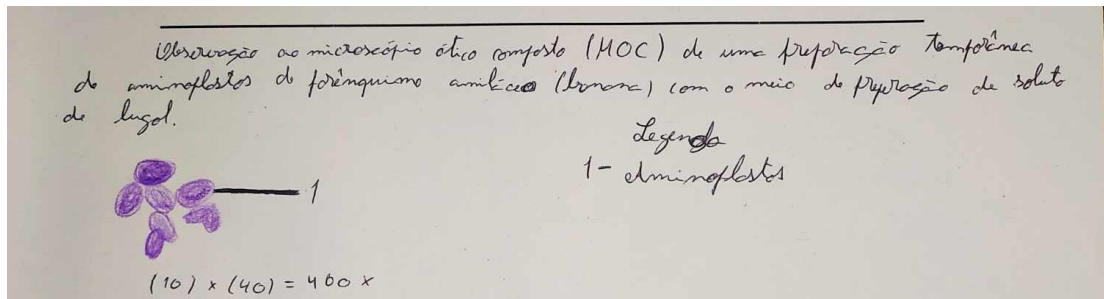 Observação ao microscópio ótico composto (MOC) de uma preparação temporânea
de aminoplastos do parênquimo amiláceo (banana) com o meio de preparação de soluto
de lugol.
Legenda
1- Aminoplastos
1
(10) x (40) = 400 x